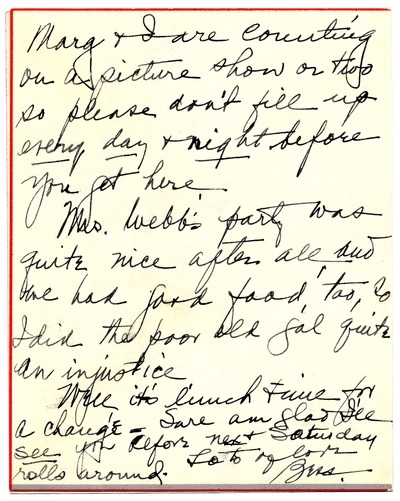 Marg + I are counting
on a picture show or two
so please don't fill up
every day + night before
you get here.
Mrs. Webb's party was
quite nice after all and
we had good food, too, so
I did the poor old gal quite
an injustice
Well, it's lunch time for
a change - Sure am glad I'll
see you before next Saturday
rolls around. Lots of love
Bess.